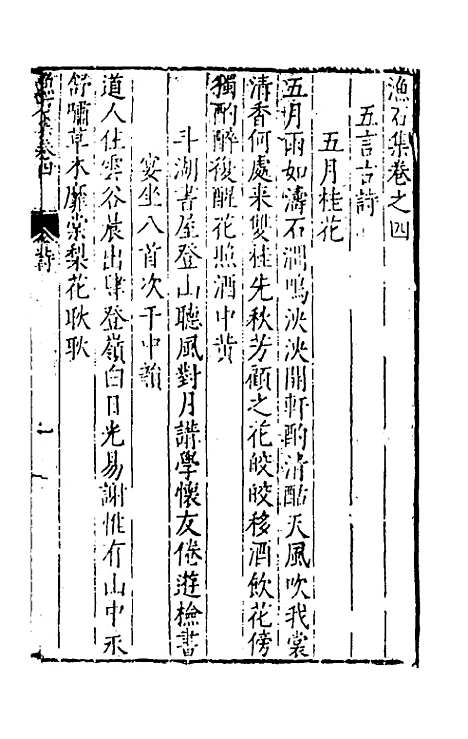 漁石集卷之四
五言古詩
五月桂花
五月雨如濤石澗鳴泱泱開軒酌清酤天風吹我裳
清香何處来雙桂先秋芳顧之花皎皎移酒飲花傍
獨酌醉復醒花照酒中黄
斗湖書屋登山聽風對月講學懷友倦遊檢書
宴坐八首次于中韻
道人住雲谷晨出肆登嶺白日光易謝惟有山中永
舒嘯草木靡棠梨花耿耿
漁石集卷四